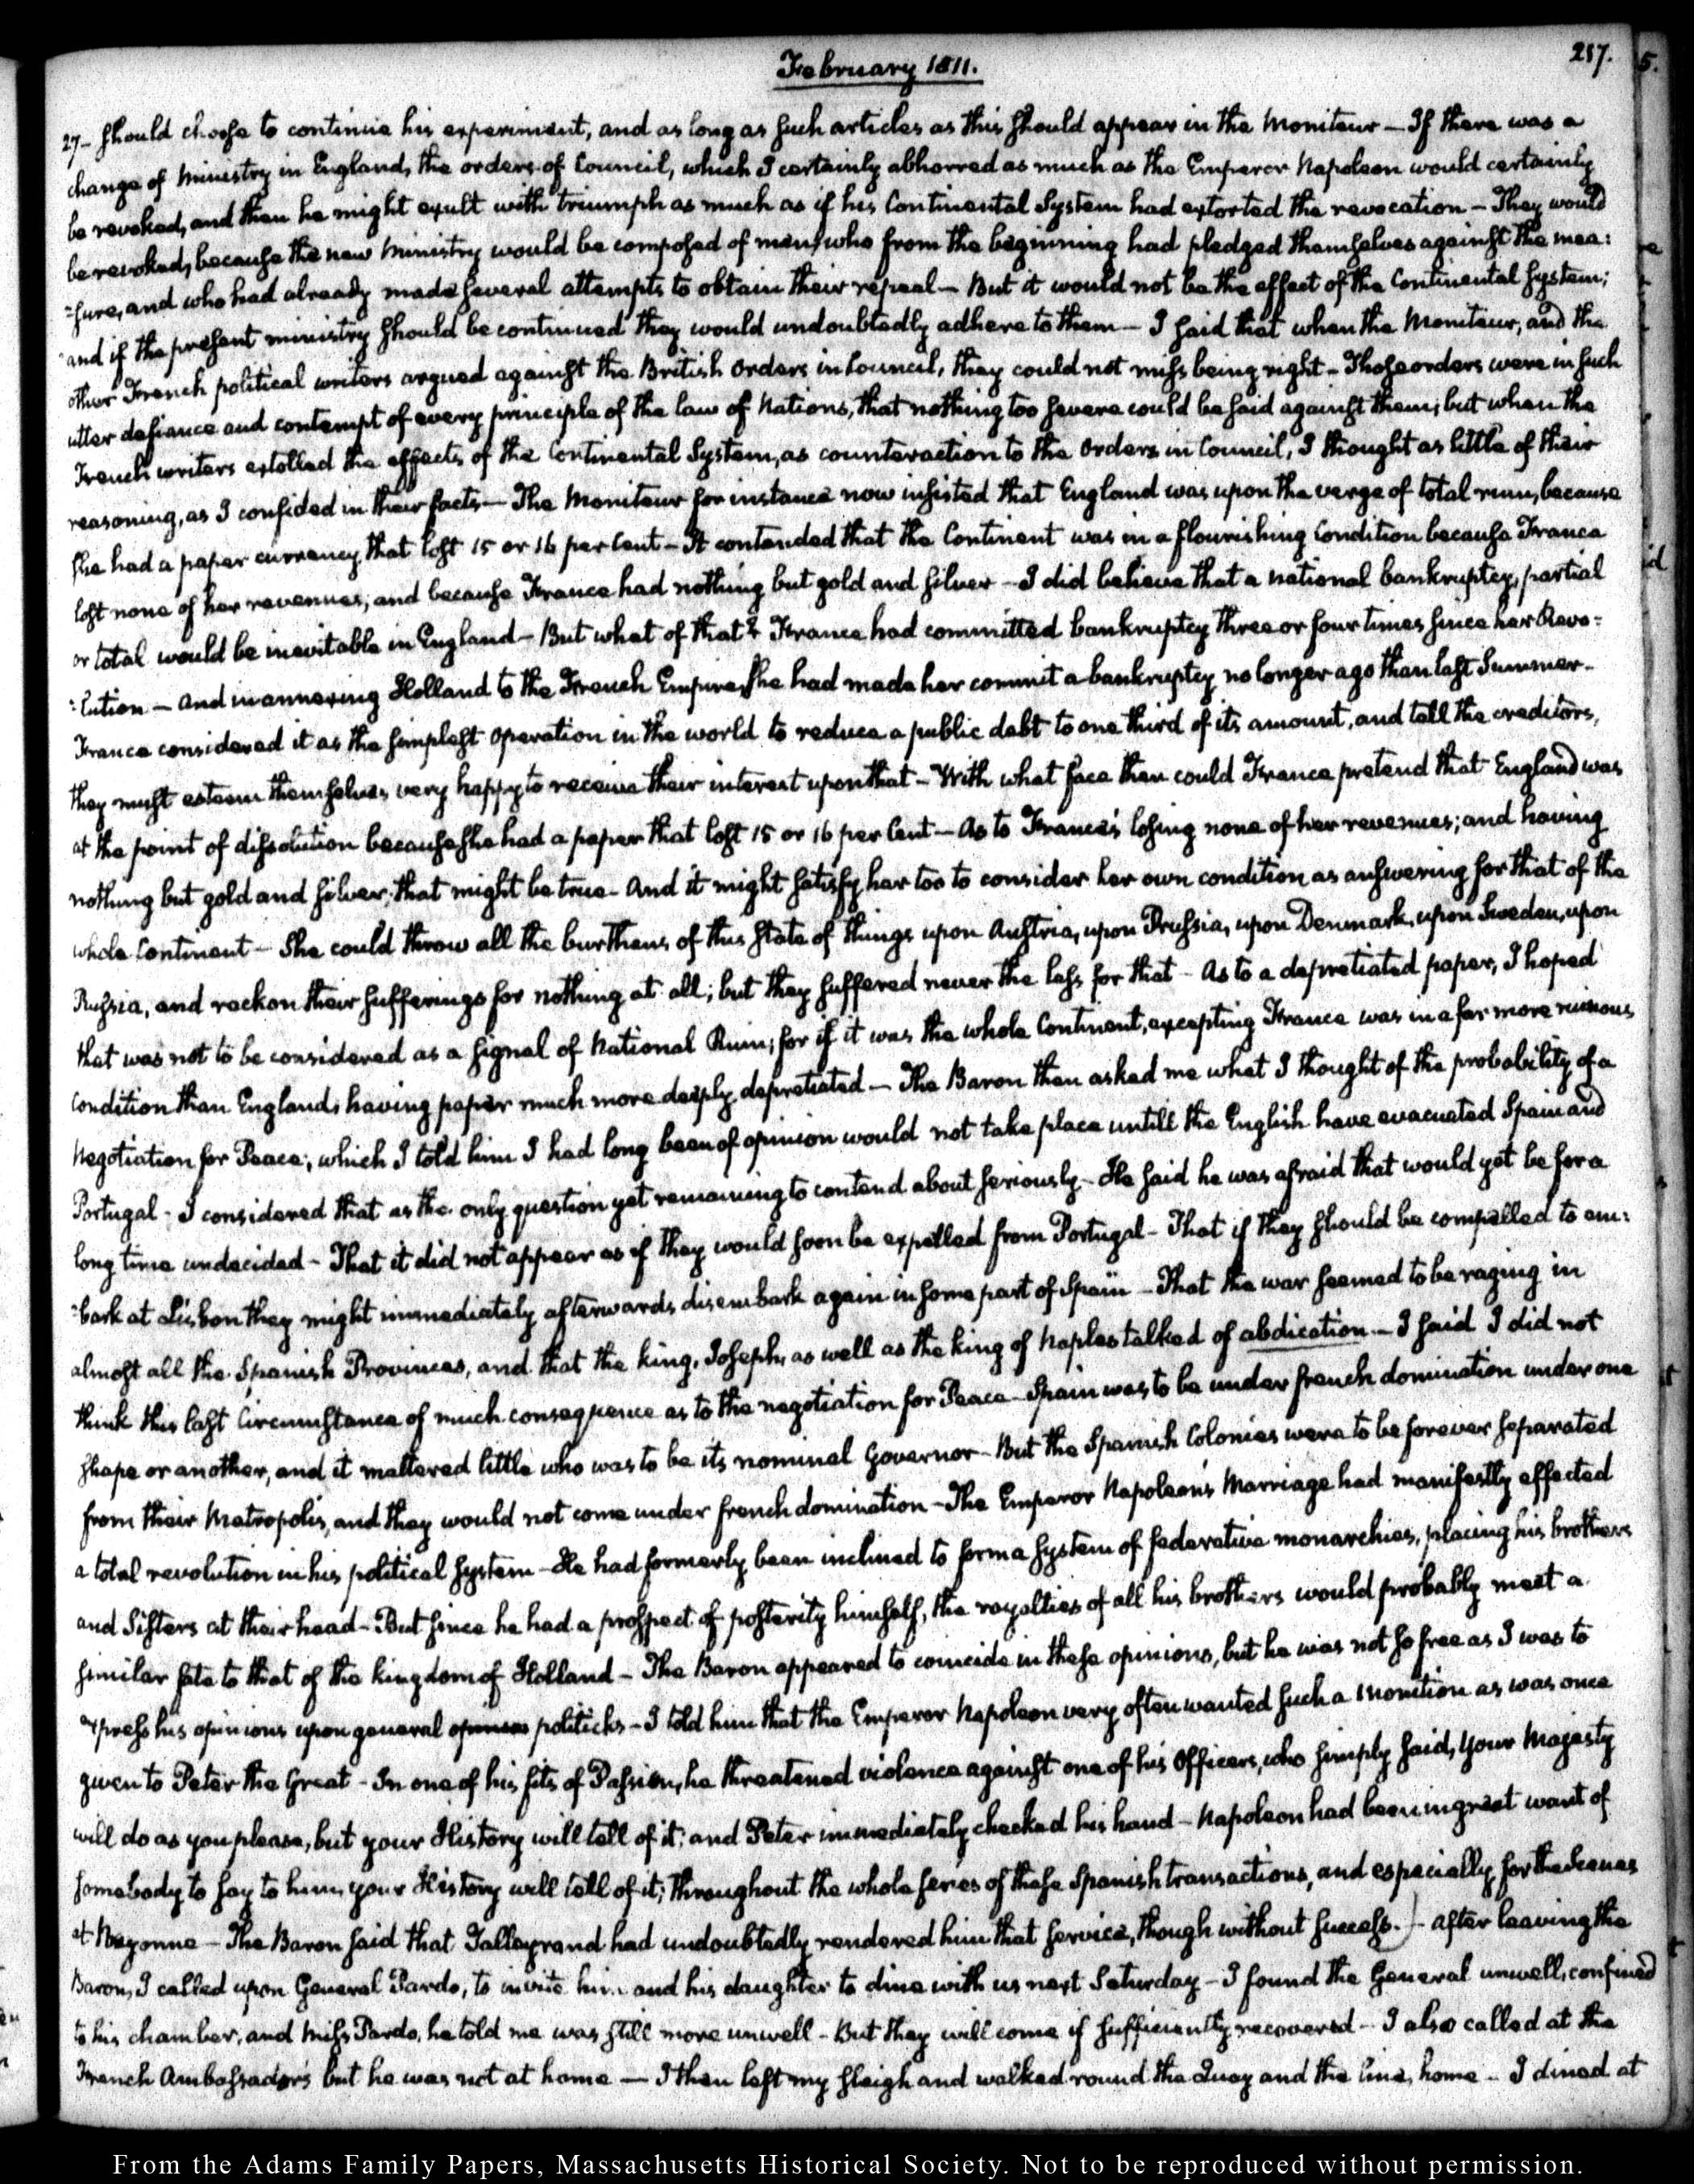 February 1811.
257.
5.
27 - should choose to continue his experiment, and as long as such articles as this should appear in the Moniteur — If there was a
change of Ministry in England, the orders of Council, which I certainly abhorred as much as the Emperor Napoleon would certainly
be revoked, and then he might exult with triumph as much as if his Continental System had extorted the revocation — They would
be revoked, because the new Ministry would be composed of men, who from the beginning had pledged themselves against the mea:
:sure, and who had already made several attempts to obtain their repeal — But it would not be the effect of the Continental System;
and if the present ministry should be continued they would undoubtedly adhere to them — I said that when the Moniteur, and the
other French political writers argued against the British Orders in Council, they could not miss being right — Those orders were in such
utter defiance and contempt of every principle of the law of Nations, that nothing too severe could be said against them; but when the
French writers extolled the effects of the Continental System, as counteraction to the Orders in Council, I thought as little of their
reasoning, as I confided in their facts — The Moniteur for instance now insisted that England was upon the verge of total ruin, because
she had a paper currency, that lost 15 or 16 per Cent — It contended that the Continent was in a flourishing Condition because France
lost none of her revenues, and because France had nothing but gold and silver — I did believe that a national bankruptcy, partial
or total would be inevitable in England — But what of that? France had committed bankruptcy three or four times since her Revo:
:lution — and in annexing Holland to the French Empire, she had made her commit a bankruptcy no longer ago than last Summer —
France considered it as the simplest operation in the world to reduce a public debt to one third of its amount, and tell the creditors,
they must esteem themselves very happy to receive their interest upon that — With what face then could France pretend that England was
at the point of dissolution because she had a paper that lost 15 or 16 per Cent — As to France's losing none of her revenues; and having
nothing but gold and silver, that might be true — And it might satisfy her too to consider her own condition as answering for that of the
whole Continent — She could throw all the burthens of this State of things upon Austria, upon Prussia, upon Denmark, upon Sweden, upon
Russia, and reckon their sufferings for nothing at all; but they suffered never the less for that — As to a depretiated paper, I hoped
that was not to be considered as a signal of National Ruin; for if it was the whole Continent, excepting France was in a far more ruinous
condition than England; having paper much more deeply depretiated — The Baron then asked me what I thought of the probability of a
Negotiation for Peace; which I told him I had long been of opinion would not take place untill the English have evacuated Spain and
Portugal — I considered that as the only question yet remaining to contend about seriously — He said he was afraid that would yet be for a
long time undecided — That it did not appear as if they would soon be expelled from Portugal — That if they should be compelled to em:
:bark at Lisbon they might immediately afterwards disembark again in some part of Spain — That the war seemed to be raging in
almost all the Spanish Provinces, and that the king, Joseph, as well as the king of Naples talked of abdication — I said I did not
think this last Circumstance of much consequence as to the negotiation for Peace — Spain was to be under french domination under one
shape or another, and it mattered little who was to be its nominal Governor — But the Spanish Colonies were to be forever separated
from their Metropolis, and they would not come under french domination — The Emperor Napoleon's Marriage had manifestly effected
a total revolution in his political system — He had formerly been inclined to form a system of federative monarchies, placing his brothers
and Sisters at their head — But since he had a prospect of posterity himself, the royalties of all his brothers would probably meet a
similar fate to that of the kingdom of Holland — The Baron appeared to coincide in these opinions, but he was not so free as I was to
express his opinions upon general politicks — I told him that the Emperor Napoleon very often wanted such a monition as was once
given to Peter the Great — In one of his fits of Passion, he threatened violence against one of his Officers, who simply said, your Majesty
will do as you please, but your History will tell of it; and Peter immediately checked his hand — Napoleon had been in great want of
somebody to say to him, your History will tell of it; throughout the whole series of these Spanish transactions, and especially for the scenes
at Bayonne — The Baron said that Talleyrand had undoubtedly rendered him that service, though without success.) — after leaving the
Baron, I called upon General Pardo, to invite him and his daughter to dine with us next Saturday — I found the General unwell, confined
to his chamber, and Miss Pardo, he told me was still more unwell — But they will come if sufficiently recovered — I also called at the
French Ambassador's but he was not at home — I then left my sleigh and walked round the Quay and the line, home — I dined at
From the Adams Family Papers, Massachusetts Historical Society. Not to be reproduced without permission.